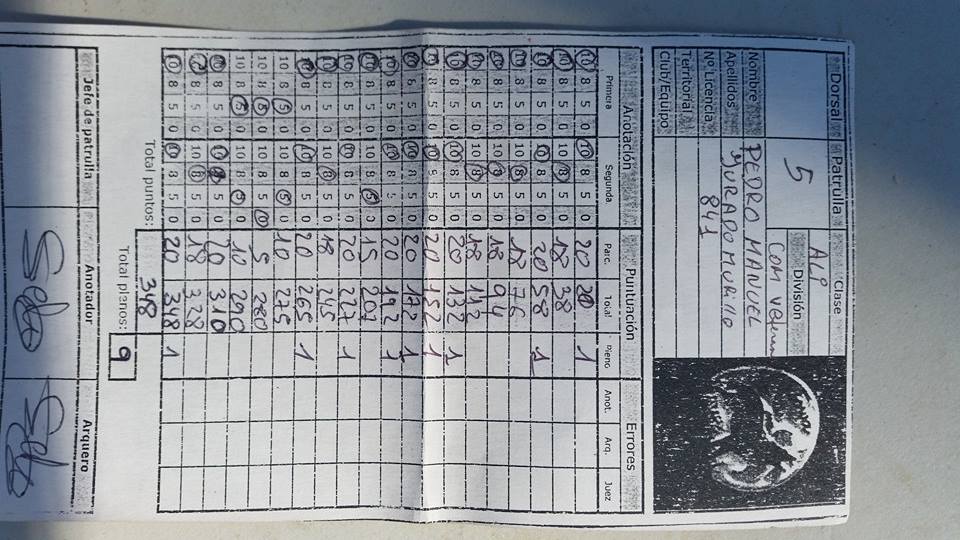 Dorsal Patrulla Clase
5 ALP
División
Nombre PEDRO MANUEL
Apellidos JURADO MURILLO
Nº Licencia 841
Territorial
Club/Equipo
Anotación Puntuación Errores
Primera Segunda Parc. Total Pleno Anot. Arq. Juez
10 8 5 0 10 8 5 0 20 20 1
10 8 5 0 10 8 5 0 18 38
10 8 5 0 10 8 5 0 20 58 1
10 8 5 0 10 8 5 0 18 76
10 8 5 0 10 8 5 0 18 94
10 8 5 0 10 8 5 0 18 112
10 8 5 0 10 8 5 0 20 132 1
10 8 5 0 10 8 5 0 20 152 1
10 8 5 0 10 8 5 0 20 172 1
10 8 5 0 10 8 5 0 20 192 1
10 8 5 0 10 8 5 0 15 207
10 8 5 0 10 8 5 0 20 227 1
10 8 5 0 10 8 5 0 18 245
10 8 5 0 10 8 5 0 20 265 1
10 8 5 0 10 8 5 0 10 275
10 8 5 0 10 8 5 0 5 280
10 8 5 0 10 8 5 0 10 290
10 8 5 0 10 8 5 0 20 310
10 8 5 0 10 8 5 0 18 328
10 8 5 0 10 8 5 0 20 348 1
Total puntos: 348 Total plenos: 9
Jefe de patrulla Anotador Arquero